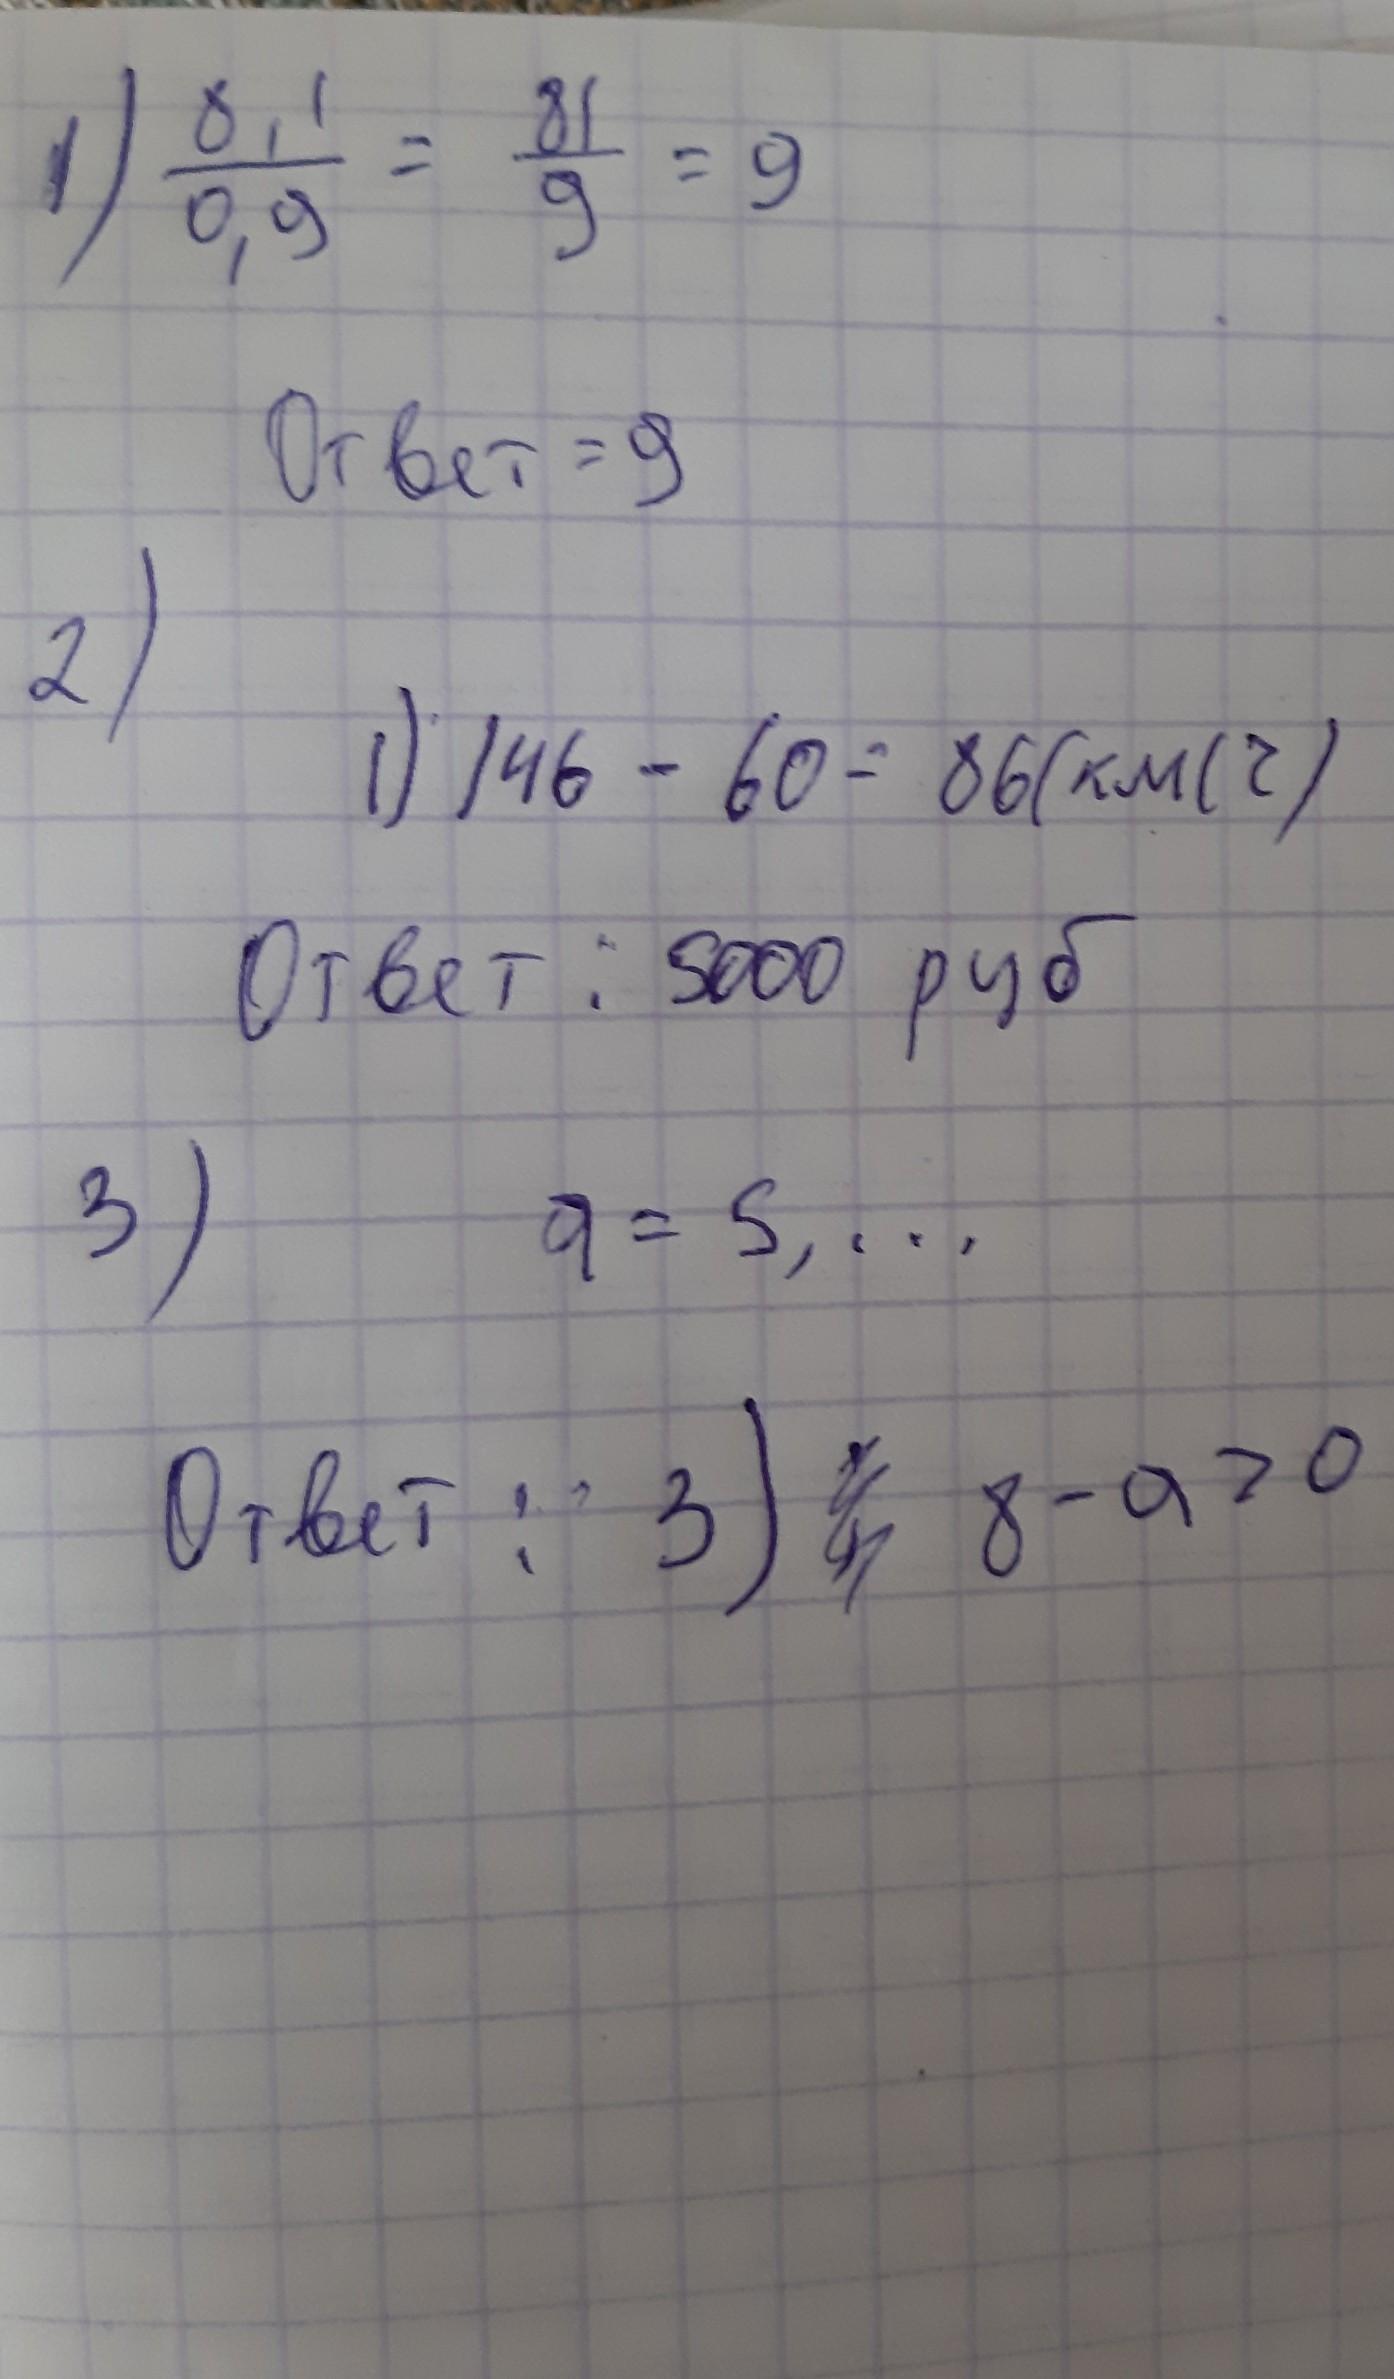 1) 8,1/0,9 = 81/9 = 9
Ответ = 9
2)
1) 146 - 60 = 86(км/ч)
Ответ : 5000 руб
3) a = 5,...
Ответ : 3) 8-a>0